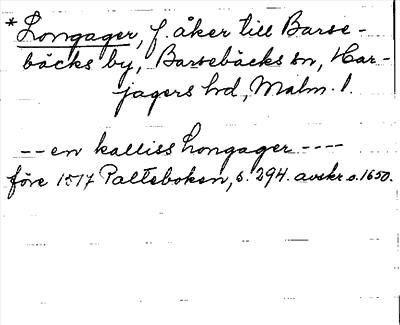 *Longager, f. åker till Barse-
bäcks by, Barsebäcks sn, Har-
jagers hd, Malm. l.
-- en kalliss Longager ----
före 1517 Palteboken, s. 294. avskr o. 1650.